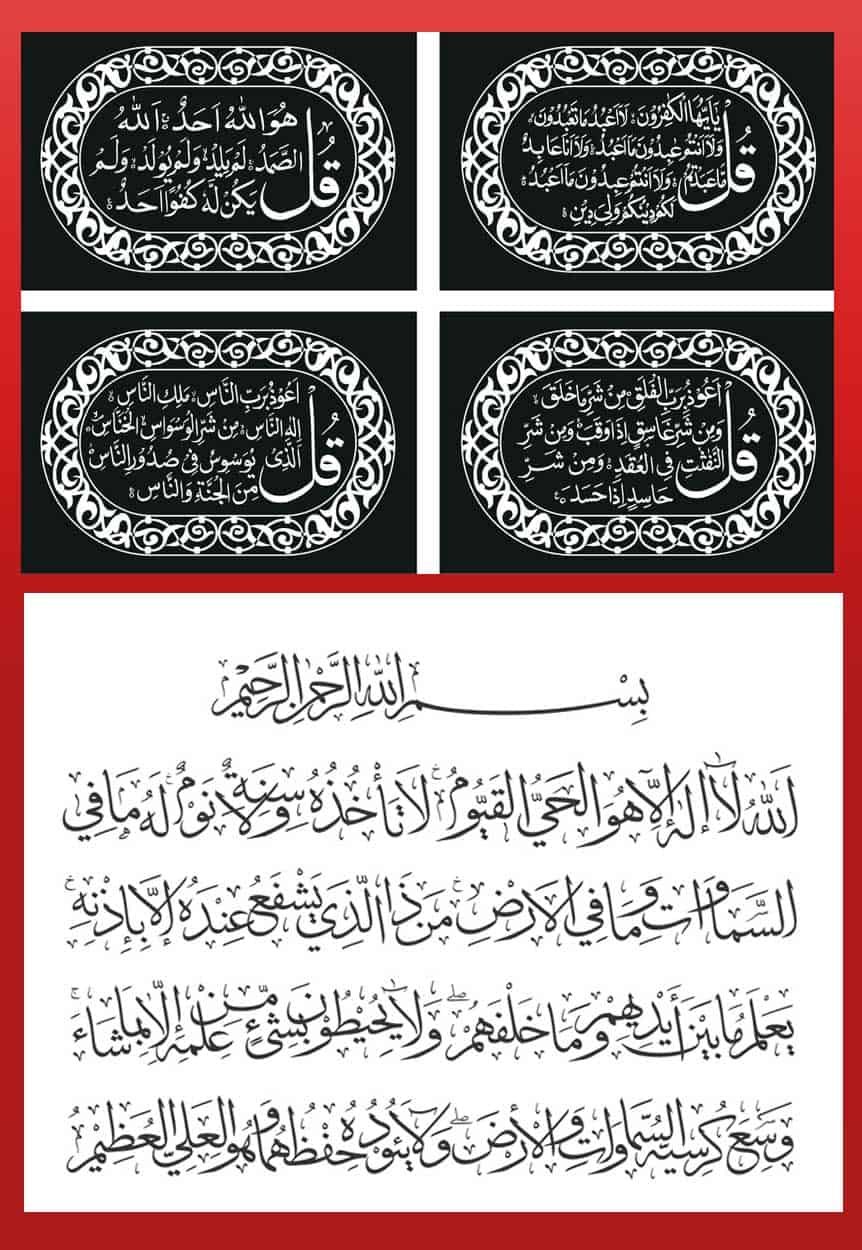 قُلْ يٰۤاَيُّهَا الْكٰفِرُوْنَ لَاۤ اَعْبُدُ مَا تَعْبُدُوْنَ
وَلَاۤ اَنْتُمْ عٰبِدُوْنَ مَاۤ اَعْبُدُ وَلَاۤ اَنَا عَابِدٌ
مَّا عَبَدْتُّمْ وَلَاۤ اَنْتُمْ عٰبِدُوْنَ مَاۤ اَعْبُدُ
لَكُمْ دِيْنُكُمْ وَلِيَ دِيْنِ
قُلْ هُوَ اللّٰهُ اَحَدٌ اَللّٰهُ
الصَّمَدُ لَمْ يَلِدْ وَلَمْ يُوْلَدْ وَلَمْ
يَكُنْ لَّهٗ كُفُوًا اَحَدٌ
قُلْ اَعُوْذُ بِرَبِّ الْفَلَقِ مِنْ شَرِّ مَا خَلَقَ
وَمِنْ شَرِّ غَاسِقٍ اِذَا وَقَبَ وَمِنْ شَرِّ
النَّفّٰثٰتِ فِى الْعُقَدِ وَمِنْ شَرِّ
حَاسِدٍ اِذَا حَسَدَ
قُلْ اَعُوْذُ بِرَبِّ النَّاسِ مَلِكِ النَّاسِ
اِلٰهِ النَّاسِ مِنْ شَرِّ الْوَسْوَاسِ الْخَنَّاسِ
الَّذِيْ يُوَسْوِسُ فِيْ صُدُوْرِ النَّاسِ
مِنَ الْجِنَّةِ وَالنَّاسِ
بِسْمِ اللّٰهِ الرَّحْمٰنِ الرَّحِيْمِ
اَللّٰهُ لَاۤ إِلٰهَ إِلَّا هُوَ الْحَيُّ الْقَيُّوْمُ لَا تَأْخُذُهُ سِنَةٌ وَلَا نَوْمٌ لَهُ مَا فِي
السَّمَاوَاتِ وَمَا فِي الْاَرْضِ مَنْ ذَا الَّذِي يَشْفَعُ عِنْدَهُ إِلَّا بِإِذْنِهِ
يَعْلَمُ مَا بَيْنَ أَيْدِيهِمْ وَمَا خَلْفَهُمْ وَلَا يُحِيْطُوْنَ بِشَيْءٍ مِّنْ عِلْمِهِ إِلَّا بِمَا شَاءَ
وَسِعَ كُرْسِيُّهُ السَّمَاوَاتِ وَالْأَرْضَ وَلَا يَئُودُهُ حِفْظُهُمَا وَهُوَ الْعَلِيُّ الْعَظِيْمُ